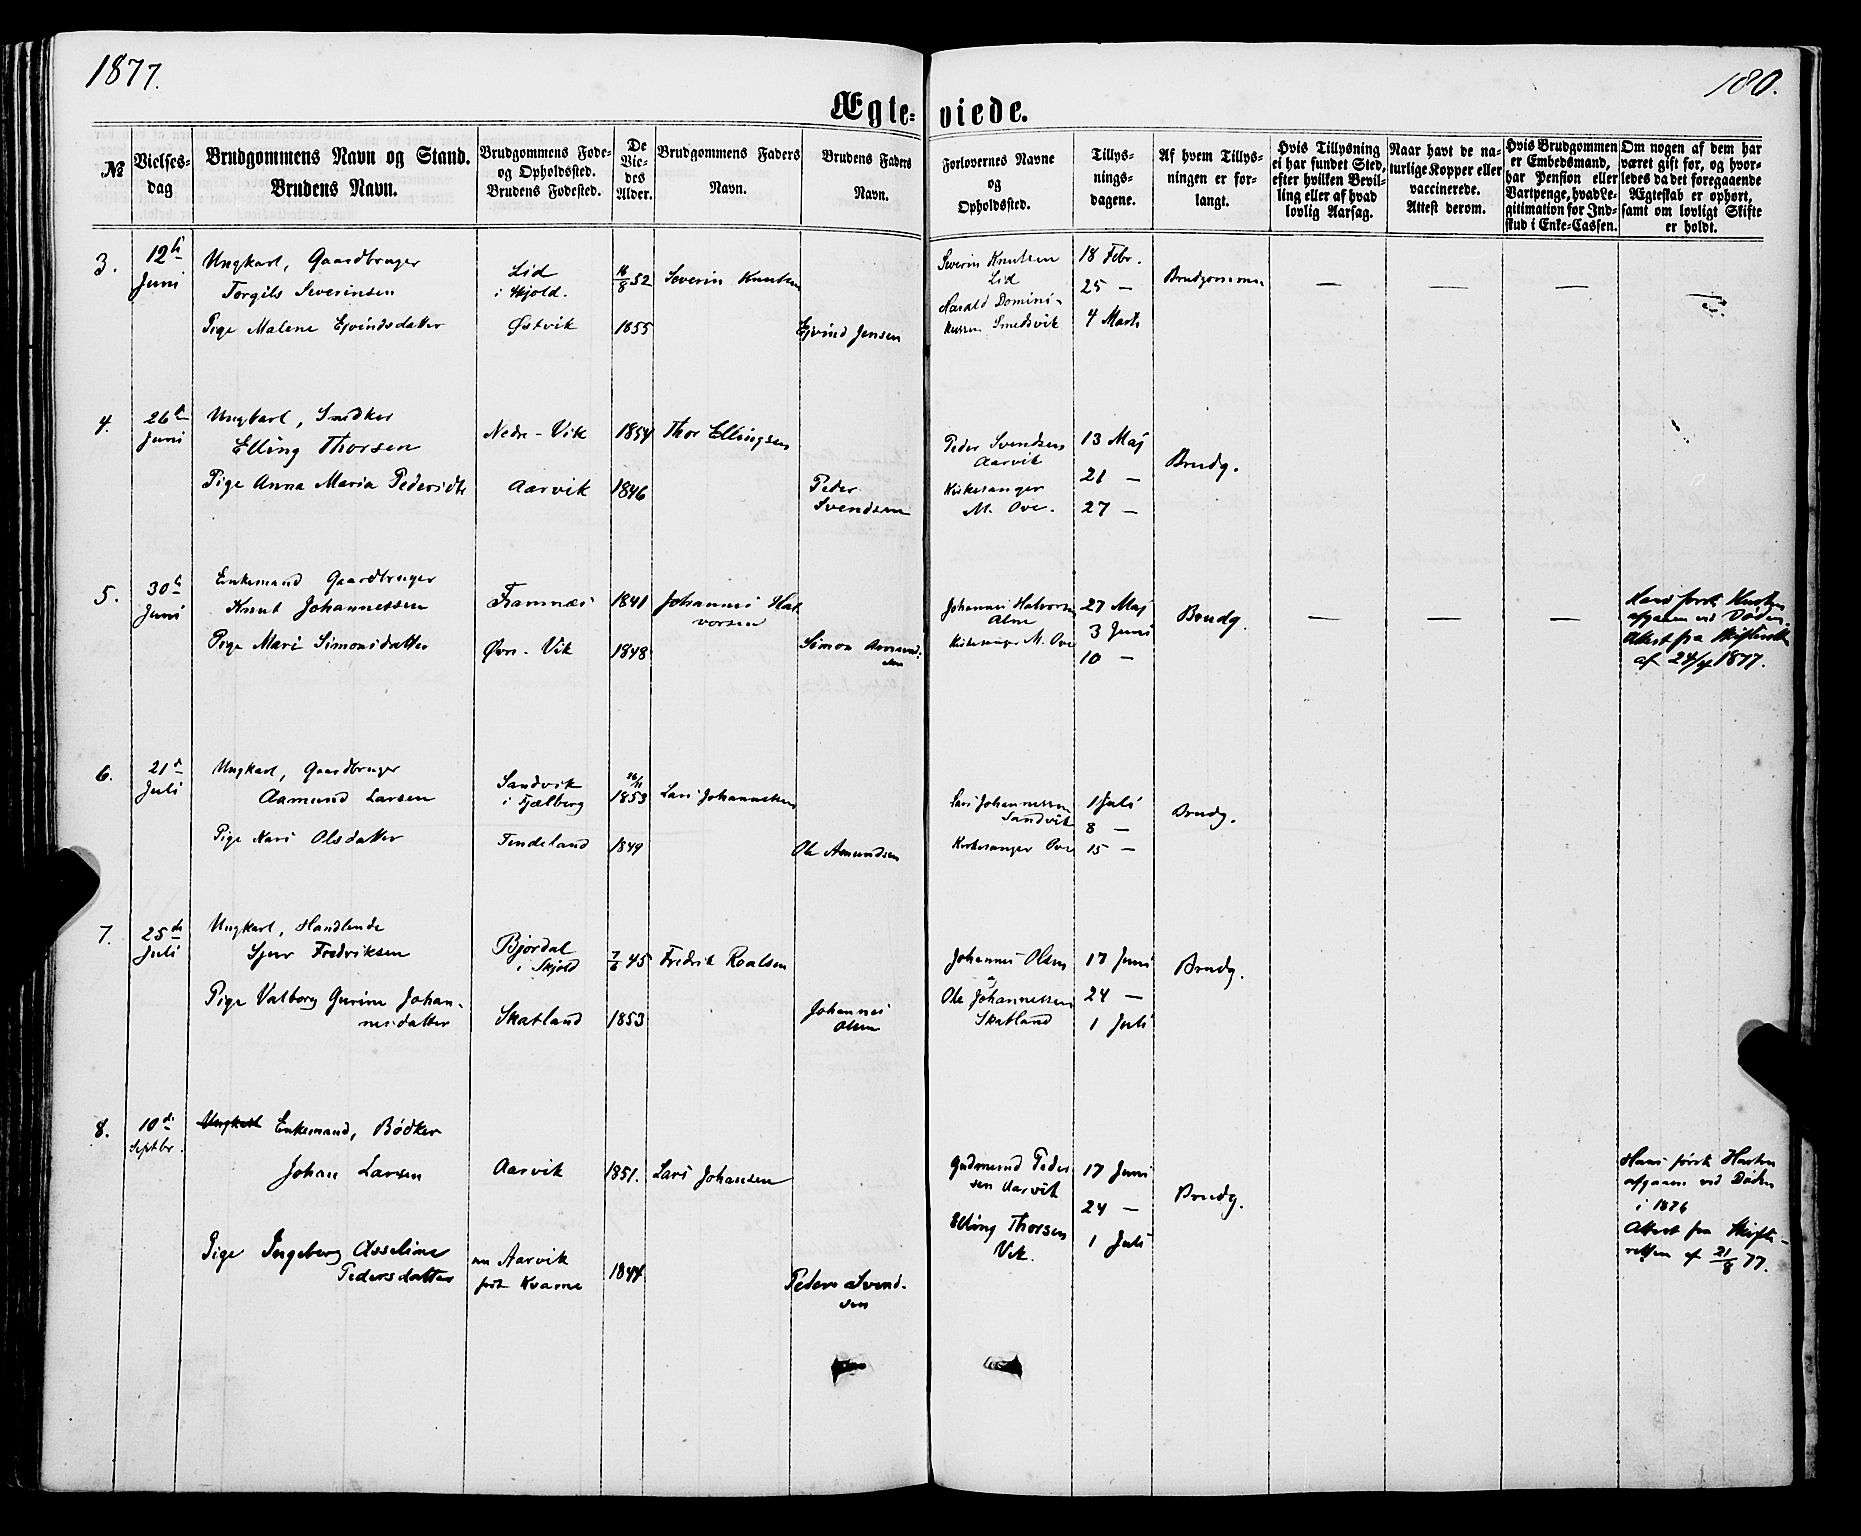 1877.
180.
Ægte-
viede.
№
Vielses-
dag
Brudgommens Navn og Stand.
Brudens Navn.
Brudgommens Føde-
og Opholdssted.
Brudens Fødested.
De
Vie-
des
Alder.
Brudgommens Faders
Navn.
Brudens Faders
Navn.
Forlovernes Navne
og
Opholdssted.
Tillys-
nings-
dagene.
Af hvem Tillys-
ningen er for-
langt.
Hvis Tillysning
ei har fundet Sted,
efter hvilken Bevil-
ling eller af hvad
lovlig Aarsag.
Naar havt de na-
turlige Kopper eller
vaccinerede.
Attest derom.
Hvis Brudgommen
er Embedsmand,
har Pension eller
Vartpenge, hvad Le-
gitimation for Ind-
skud i Enke-Cassen.
Om nogen af dem har
været gift før, og hvor-
ledes da det foregaaende
Ægteskab er ophørt,
samt om lovligt Skifte
er holdt.
3.
12te
Juni
Ungkarl, Gaardbruger
Torgils Severinsen
Pige Malene Ejvindsdatter
Lid
i Skjold.
Østvik
16/8 52
1855
Severin Knutsen
Ejvind Jensen
Severin Knutsen
Lid
Harald Domini-
kussen Smedsvik
18 Febr.
25 —
4 Marts
Brudgommen
— — — —
4.
26de
Juni
Ungkarl, Snedker
Elling Thorsen
Pige Anna Maria Pedersdtr
Nedre-Vik
Aarvik
1854
1846
Thor Ellingsen
Peder
Svendsen
Peder Svendsen
Aarvik
Kirkesanger
M. Ove.
13 Maj
21 —
27 —
Brudg.
5.
30te
Juni
Enkemand Gaardbruger
Knut Johannessen
Pige Mari Simonsdatter
Framnæs
Øvre-Vik
1841
1848
Johannes Hal
vorsen
Simon Amund-
sen
Johannes Halvorsen
Kirkesanger M. Ove
27 Maj
3 Juni
10 —
Brudg.
— — —
Hans første Hustru
afgaaen ved Døden.
Attest fra Skifteretten
af 24/4 1877.
6.
21de
Juli
Ungkarl, Gaardbruger
Aamund Larsen
Pige Mari Olsdatter
Sandvik
i Fjælberg
Tendeland
26/11
1853
1849
Lars Johannessen
Ole Amundsen
Lars Johannessen
Sandvik
Kirkesanger Ove
1 Juli
8 —
15 —
Brudg.
7.
25de
Juli
Ungkarl, Handlende
Sjur Fredriksen
Pige Valborg Gurine Johan-
nesdatter
Bjordal
i Skjold
Skatland
7/6 45
1853
Fredrik Roalsen
Johannes
Olsen
Johannes Olsen
Ole Johannessen
Skatland
17 Juni
24 —
1 Juli
Brudg.
8.
10de
Septbr.
Ungkarl Enkemand, Bødker
Johan Larsen
Pige Ingeborg Asseline
Pedersdatter
Aarvik
nu Aarvik
født Kvame
1851.
1844
Lars Johansen
Peder Svend-
sen
Gudmund Peder
sen Aarvik
Elling Thorsen
Vik.
17 Juni
24 —
1 Juli
Brudg.
Hans første Hustru
afgaaen ved Døden
i 1876
Attest fra Skifte-
retten af 21/8 77.